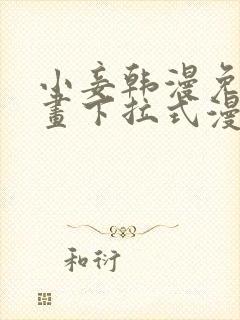 小妾韩漫免
畫下拉式漫
和衍